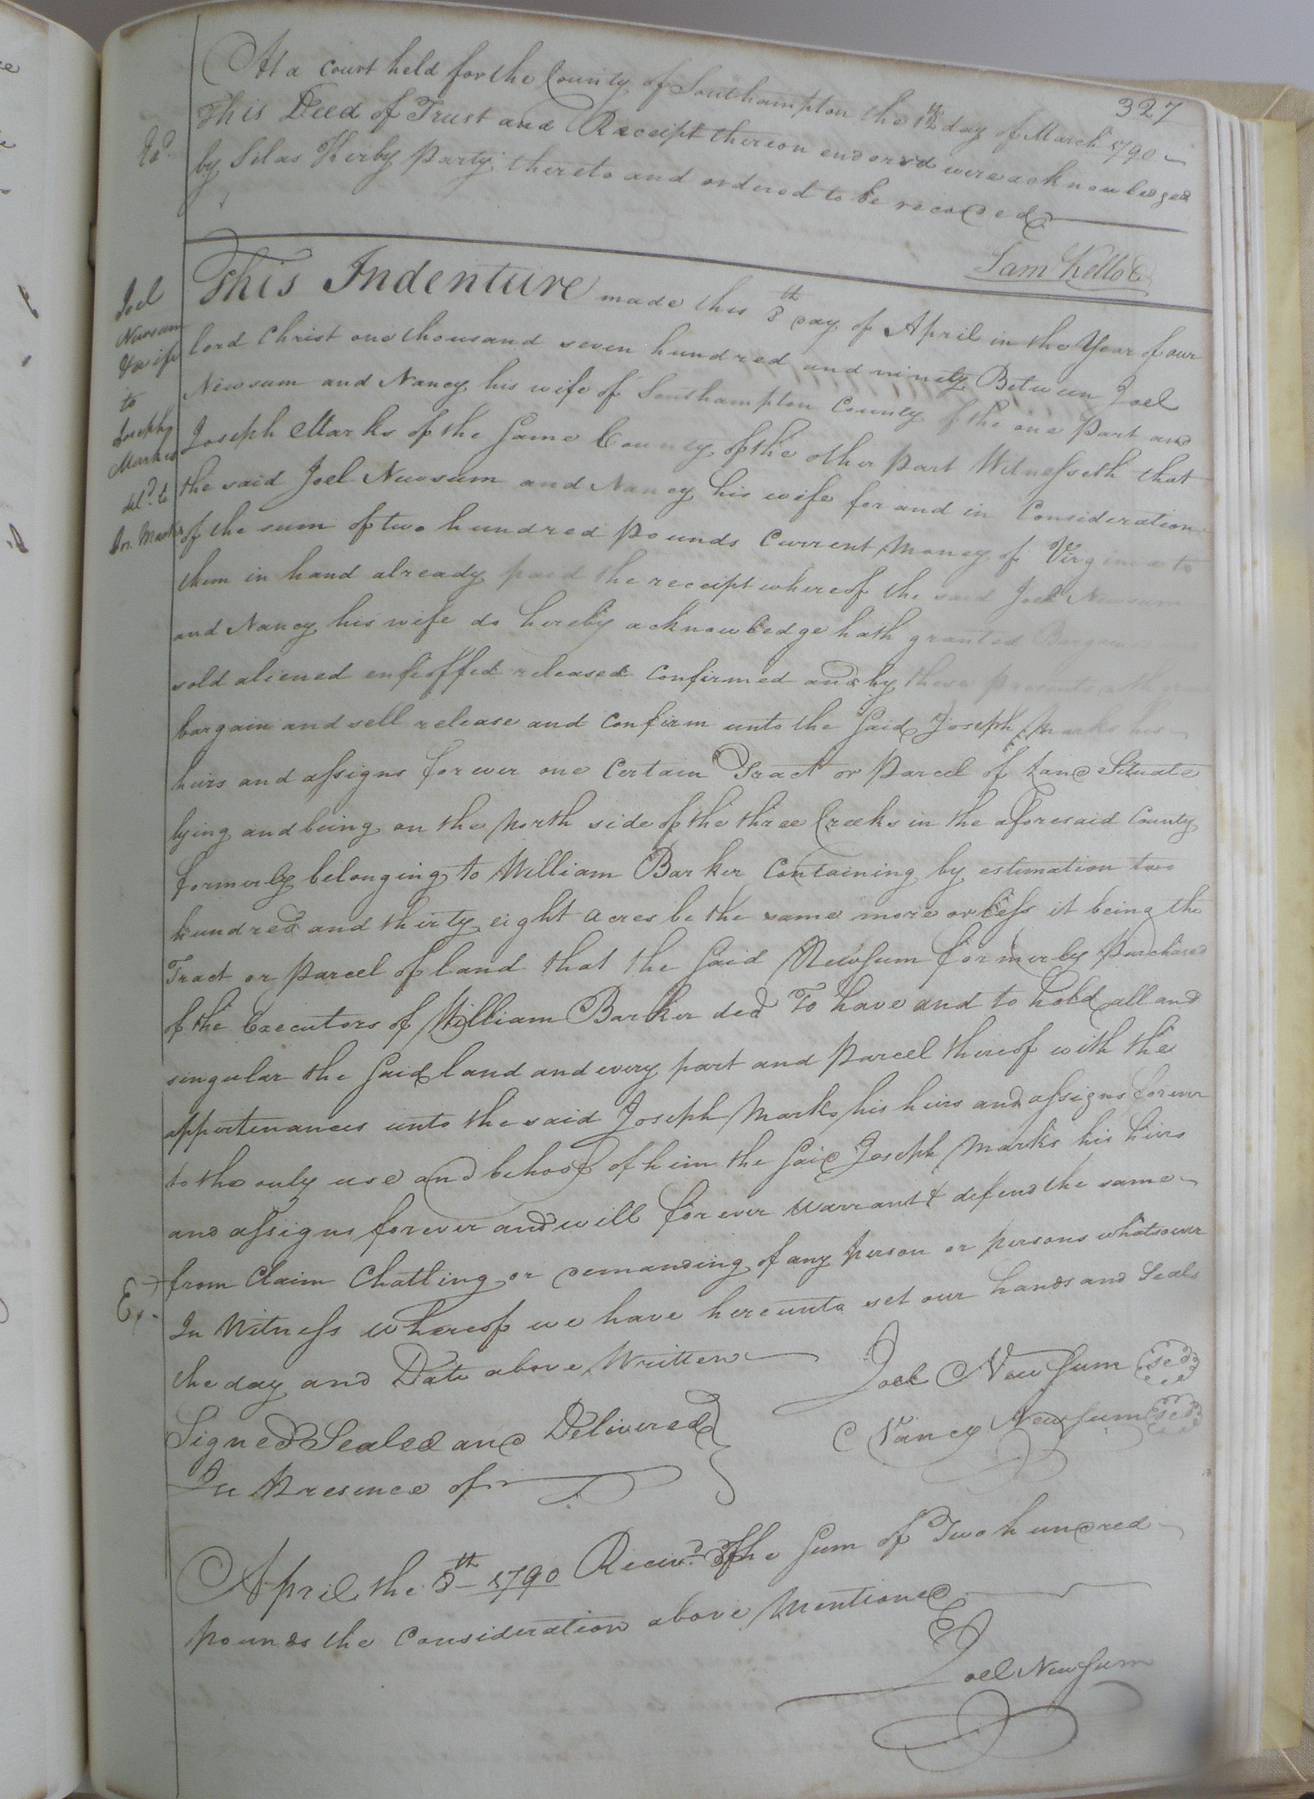 327
At a Court held for the County of Southampton the 11th day of March 1790
This Deed of Trust and Receipt thereon endorsed were acknowledged
by Silas Kerby party thereto and ordered to be recorded
Sam Kello C
Joel
Newsum
& wife
to
Joseph
Marks
del.d to
Jos. Marks
This Indenture made this 8th day of April in the Year of our
lord Christ one thousand seven hundred and ninety Between Joel
Newsum and Nancy his wife of Southampton County of the one Part and
Joseph Marks of the Same County of the other part Witnesseth that
the said Joel Newsum and Nancy his wife for and in Consideration
of the sum of two hundred Pounds Current Money of Virginia to
them in hand already paid the receipt whereof the said Joel Newsum
and Nancy his wife do hereby acknowledge hath granted
sold aliened enfeoffed released confirmed and by these presents
bargain and sell release and Confirm unto the Said Joseph Marks his
heirs and assigns forever one Certain Tract or Parcel of Land Situate
lying and being on the North side of the three Creeks in the aforesaid County
formerly belonging to William Barker Containing by estimation two
hundred and thirty eight acres be the same more or less it being the
Tract or Parcel of land that the Said Newsum formerly Purchased
of the Executors of William Barker decd To have and to hold all and
singular the Said land and every part and Parcel thereof with the
appurtenances unto the said Joseph Marks his heirs and assigns forever
to the only use and behoof of him the Said Joseph Marks his heirs
and assigns forever and will forever Warrant & defend the same
from Claim Chatling or demanding of any person or persons whatsoever
Ex.
In Witness whereof we have hereunto set our hands and Seals
the day and Date above Written
Joel Newsum
Signed Sealed and Delivered
Nancy Newsum
In Presence of
April the 8th 1790 Receiv.d the Sum of Two hundred
pounds the Consideration above Mentioned
Joel Newsum